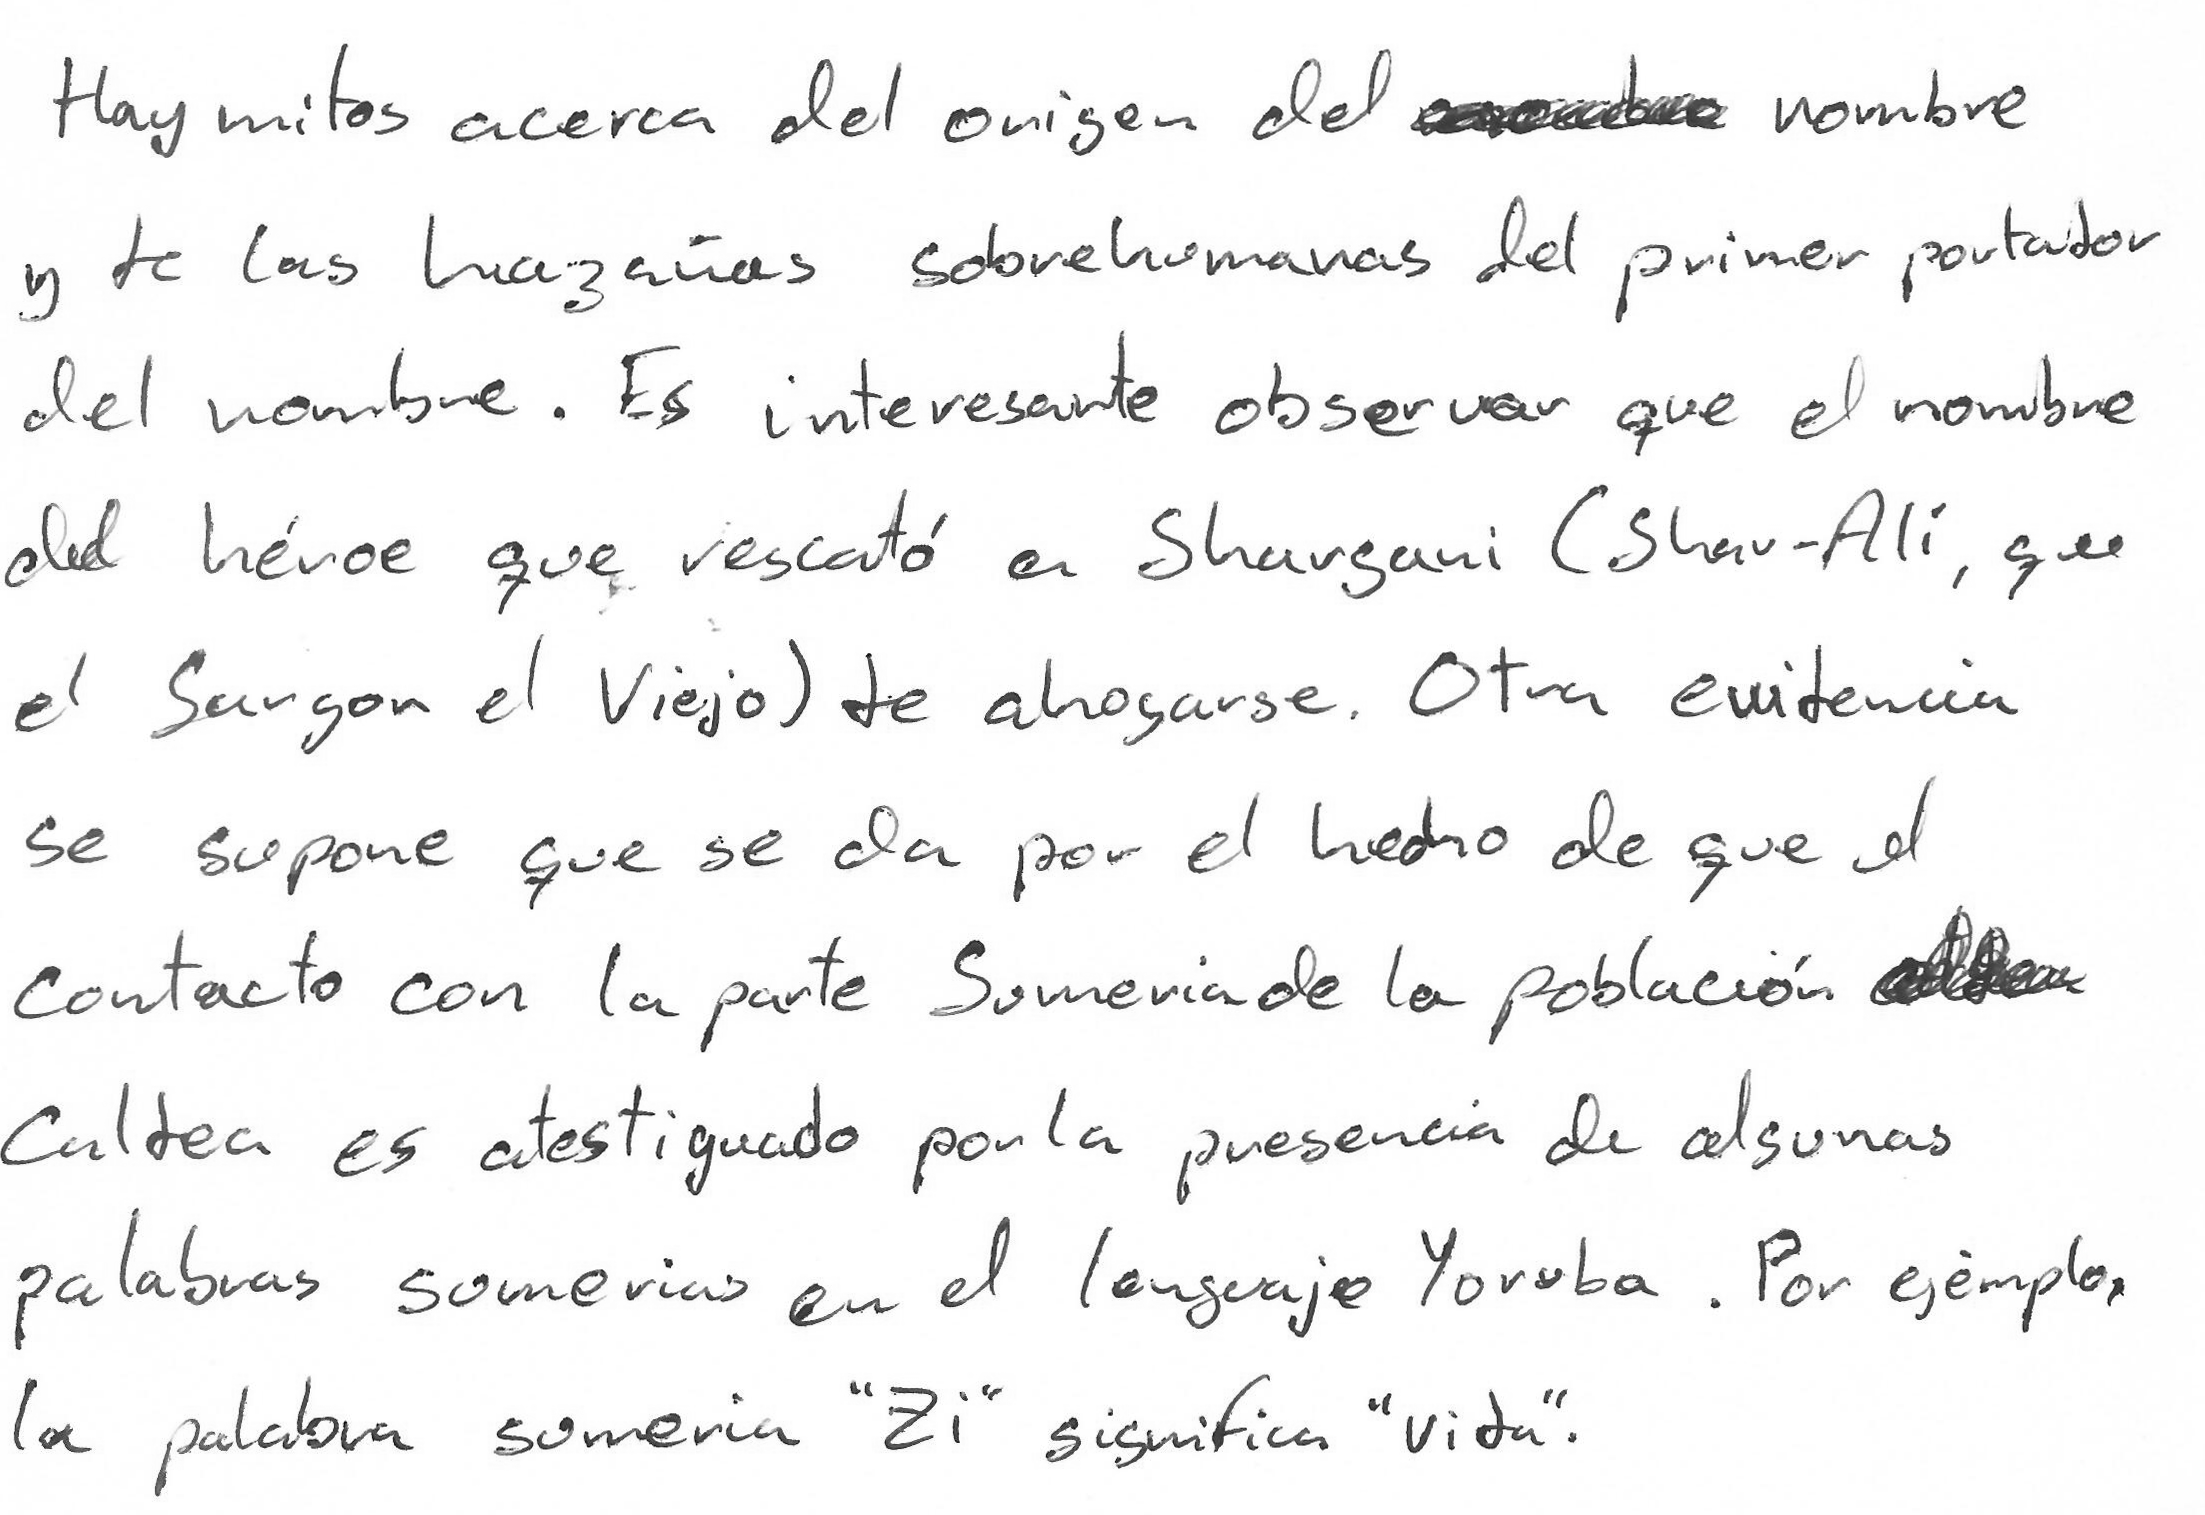 Hay mitos acerca del origen del nombre
y de las hazañas sobrehumanas del primer portador
del nombre. Es interesante observar que el nombre
del héroe que rescató a Shargani (Shar-Ali, que
el Sargon el Viejo) de ahogarse. Otra evidencia
se supone que se da por el hecho de que el
contacto con la parte Sumeria de la población
Caldea es atestiguado por la presencia de algunas
palabras sumerias en el lenguaje Yoruba. Por ejemplo,
la palabra sumeria "Zi" significa "vida".